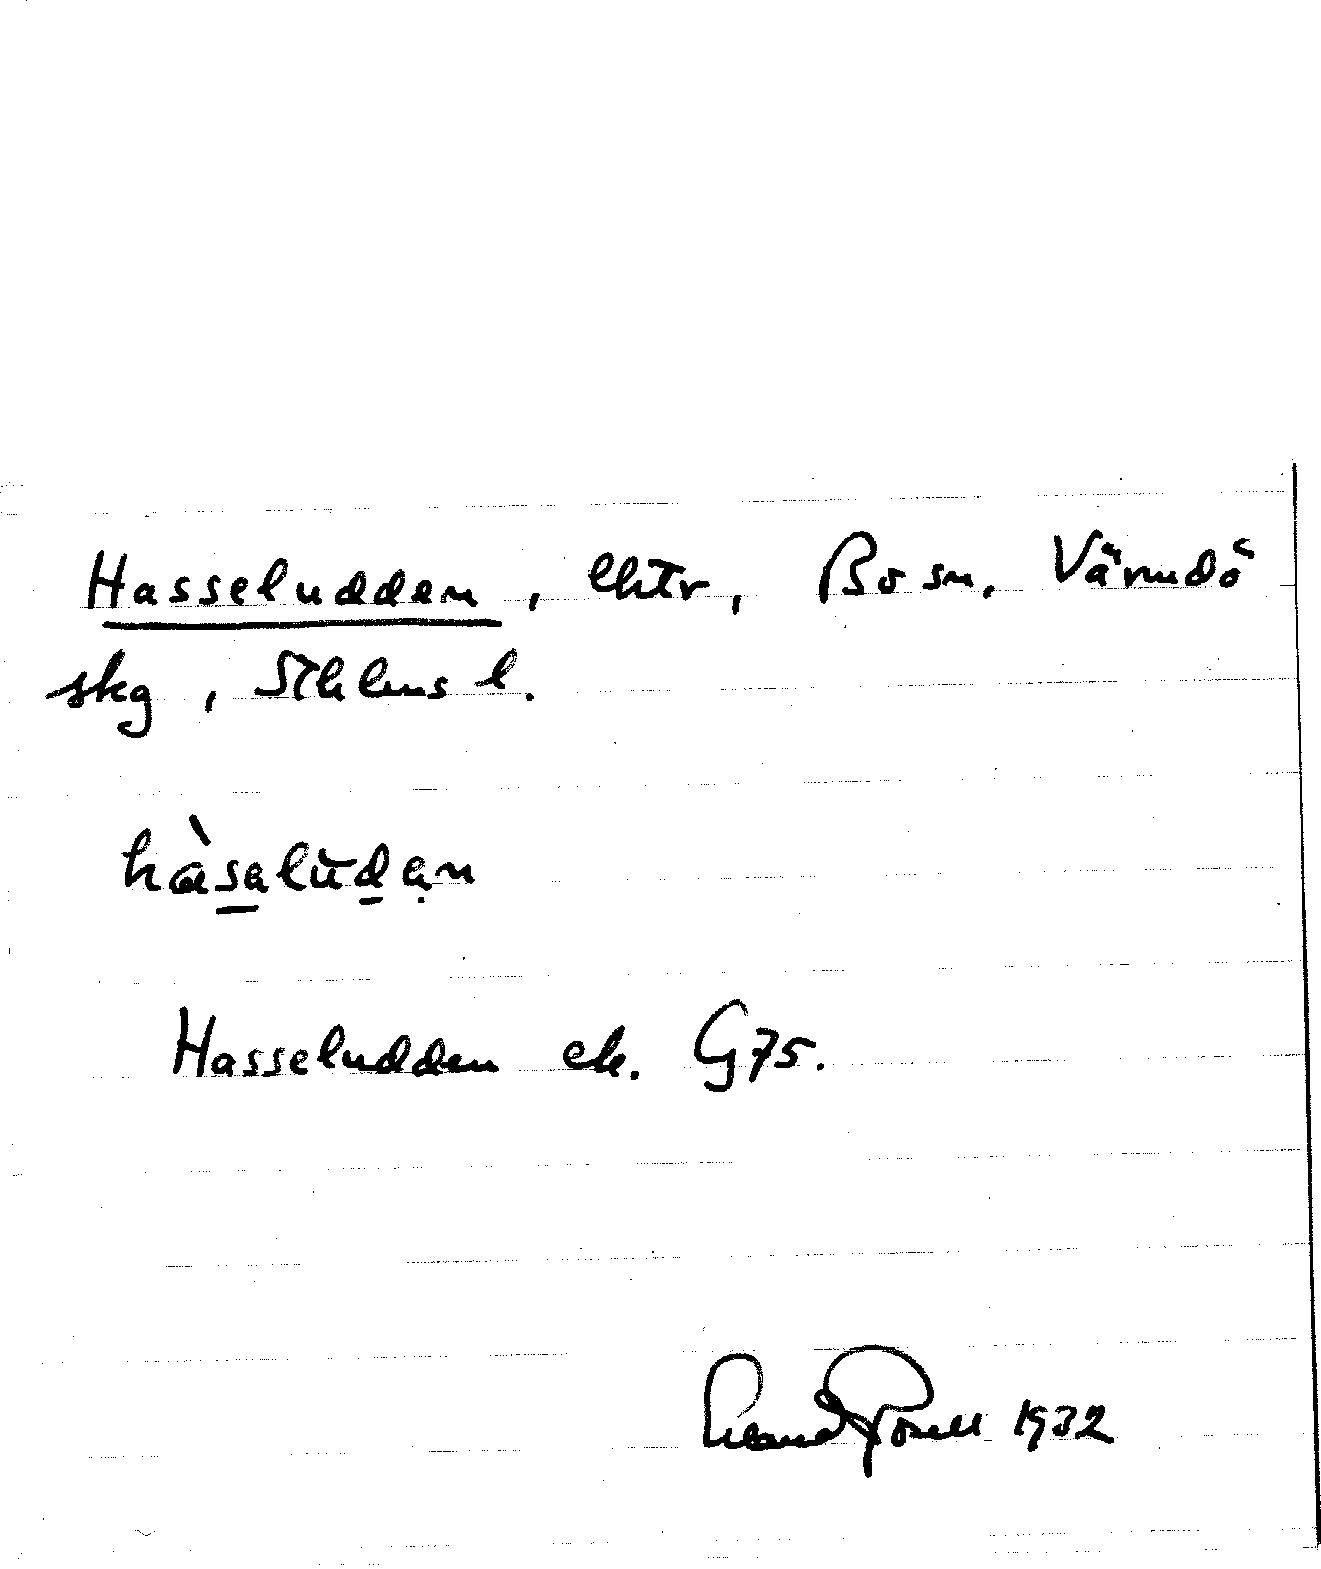 Hasseludden, lhtr, Bo sn, Värmdö
skg, Sthlms l.
hàsalu̇dạn
Hasseludden ek. G75.
1932